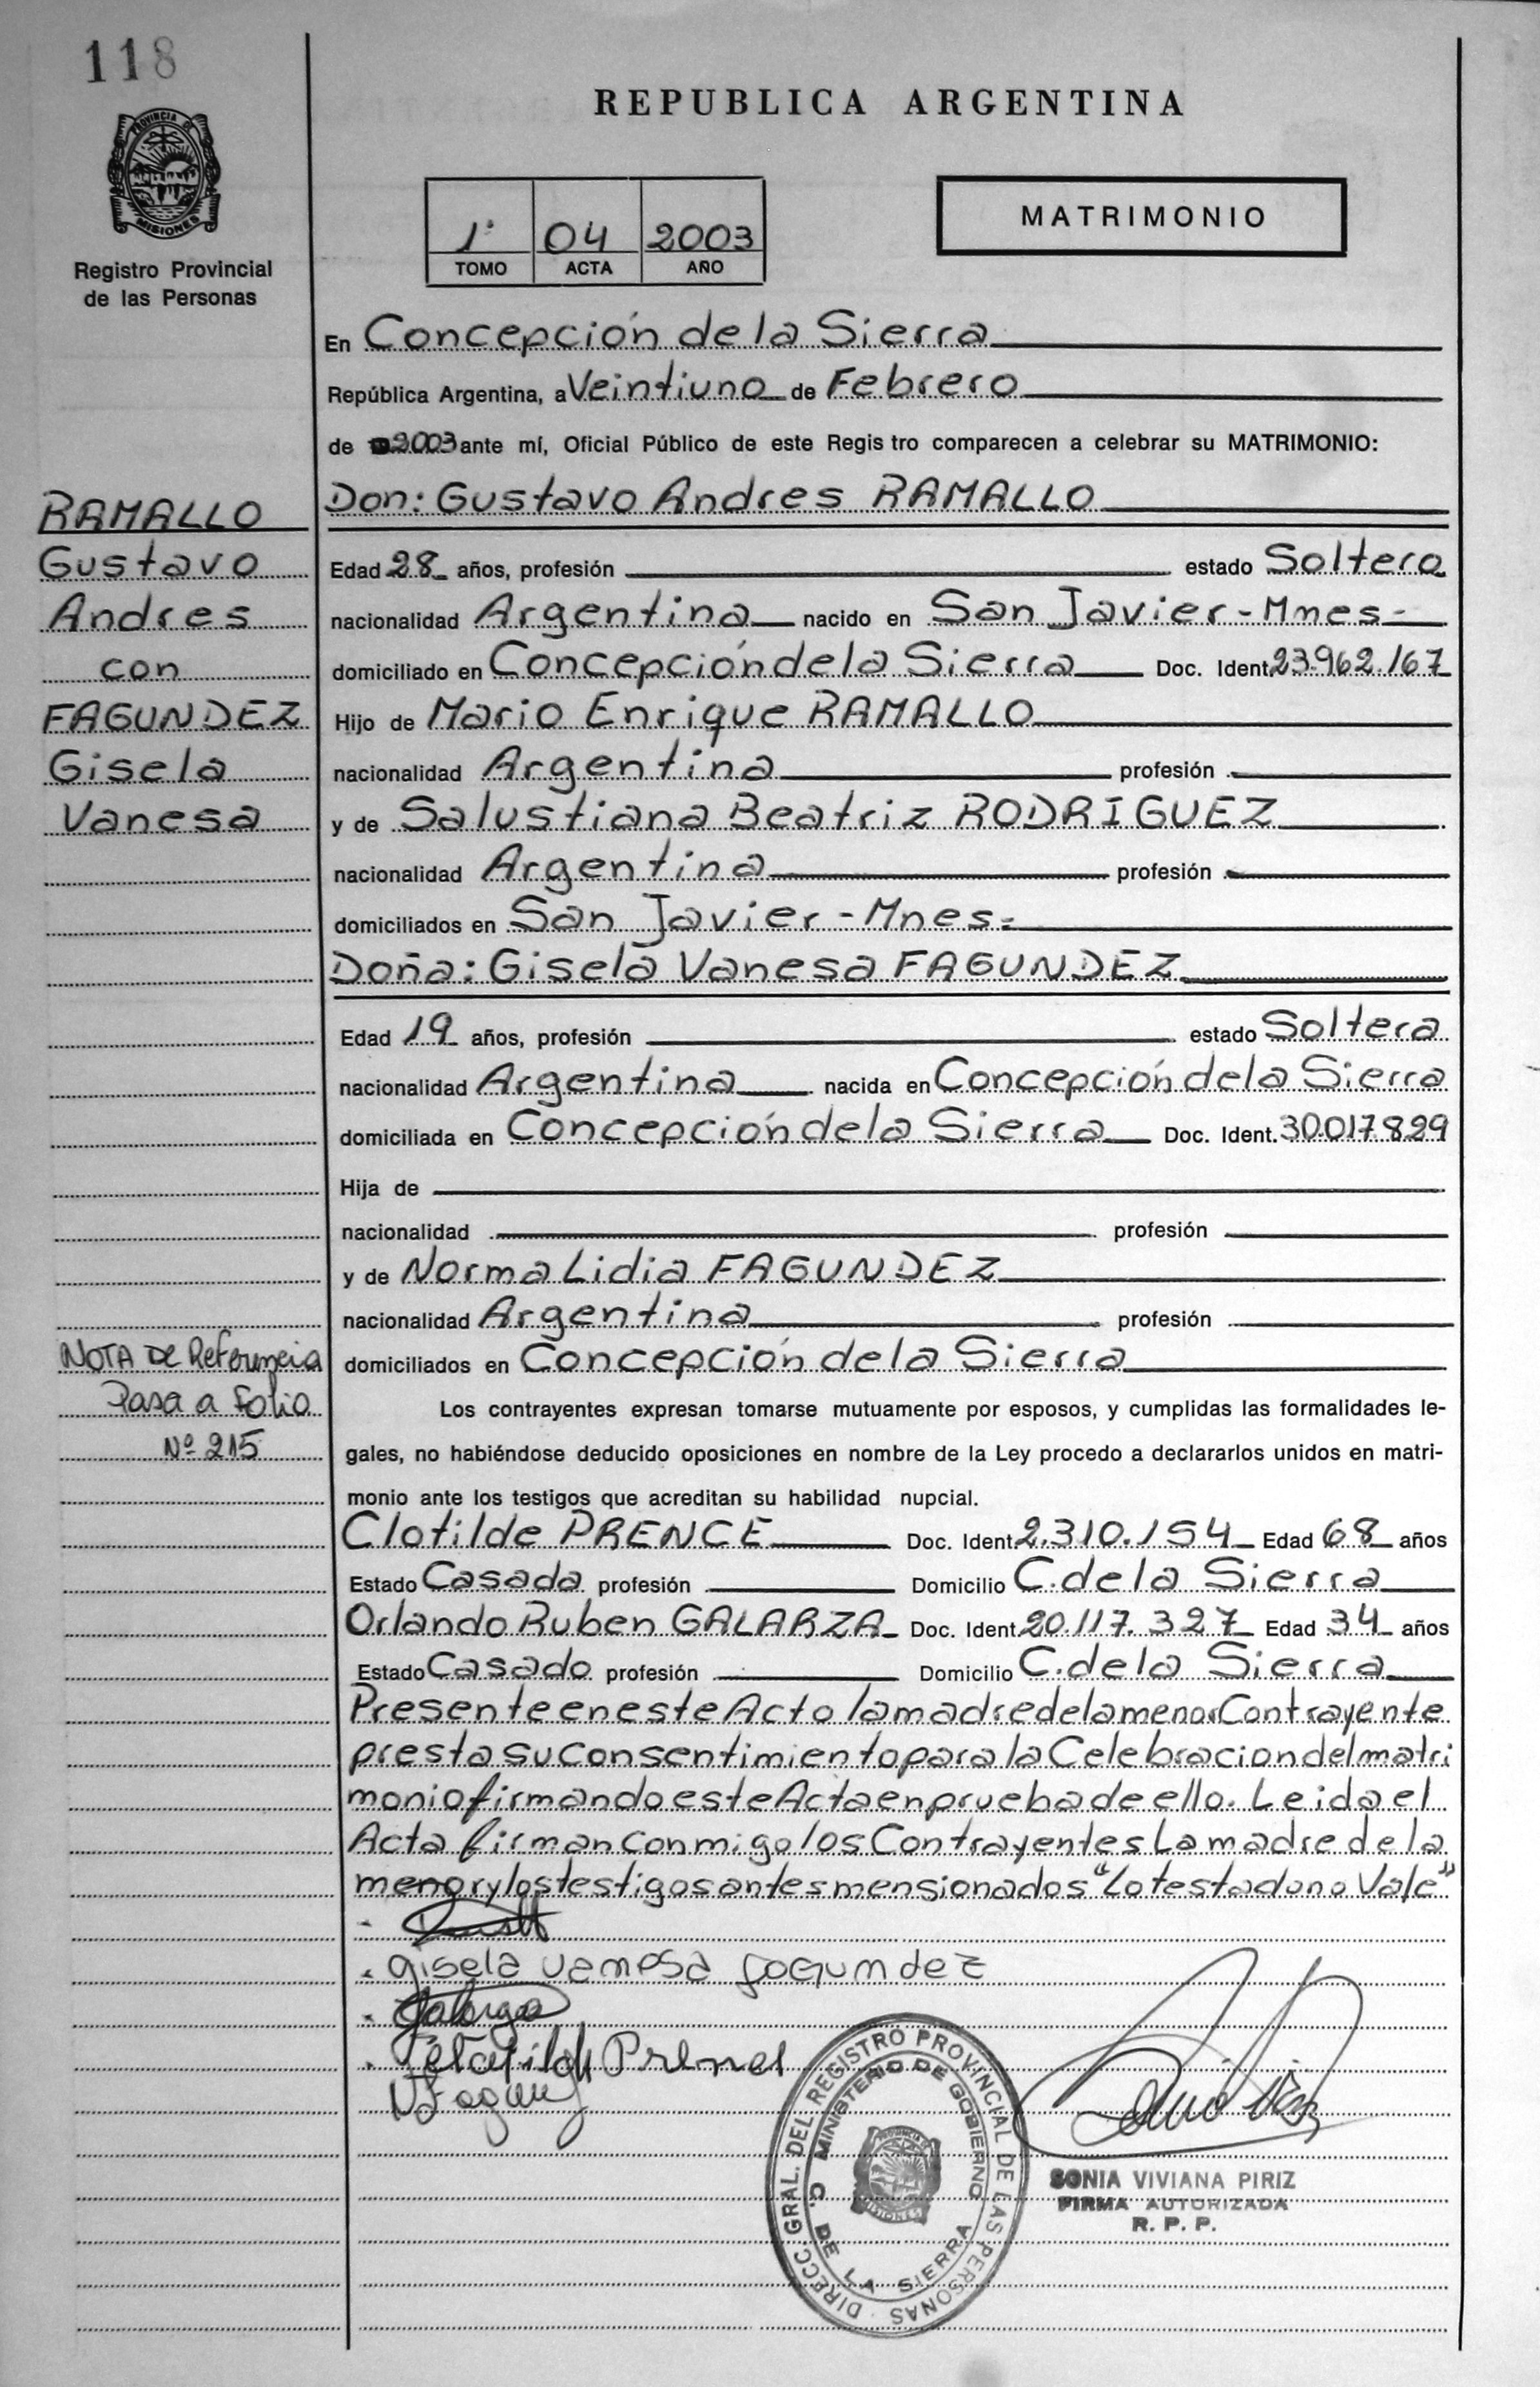 118
REPUBLICA ARGENTINA
PROVINCIA DE
MISIONES
Registro Provincial
de las Personas
1º 04 2003
TOMO ACTA AÑO
MATRIMONIO
En Concepción de la Sierra
República Argentina, a Veintiuno de Febrero
de 2003 ante mí, Oficial Público de este Regis tro comparecen a celebrar su MATRIMONIO:
Don: Gustavo Andres RAMALLO
RAMALLO
Gustavo
Andres
con
FAGUNDEZ
Gisela
Vanesa
Edad 28 años, profesión estado Soltero
nacionalidad Argentina nacido en San Javier - Mnes-
domiciliado en Concepción de la Sierra Doc. Ident. 23.962.167
Hijo de Mario Enrique RAMALLO
nacionalidad Argentina profesión
y de Salustiana Beatriz RODRIGUEZ
nacionalidad Argentina profesión
domiciliados en San Javier - Mnes-
Doña: Gisela Vanesa FAGUNDEZ
Edad 19 años, profesión estado Soltera
nacionalidad Argentina nacida en Concepción de la Sierra
domiciliada en Concepción de la Sierra Doc. Ident. 30.017.829
Hija de
nacionalidad profesión
y de Norma Lidia FAGUNDEZ
nacionalidad Argentina profesión
domiciliados en Concepción de la Sierra
NOTA DE Referencia
Pasa a Folio
Nº 215
Los contrayentes expresan tomarse mutuamente por esposos, y cumplidas las formalidades le-
gales, no habiéndose deducido oposiciones en nombre de la Ley procedo a declararlos unidos en matri-
monio ante los testigos que acreditan su habilidad nupcial.
Clotilde PRENCE Doc. Ident. 2.310.154 Edad 68 años
Estado Casada profesión Domicilio C. de la Sierra
Orlando Ruben GALARZA Doc. Ident. 20.117.327 Edad 34 años
Estado Casado profesión Domicilio C. de la Sierra
Presente en este Acto la madre de la menor Contrayente
presta su Consentimiento para la Celebracion del matri
monio firmando este Acta en prueba de ello. Leida el
Acta firman Conmigo los Contrayentes La madre de la
menor y los testigos antes mensionados "Lo testado no Vale"
Gisela Vanesa Fagundez
DIRECC. GRAL. DEL REGISTRO PROVINCIAL DE LAS PERSONAS
MINISTERIO DE GOBIERNO
C. DE LA SIERRA
SONIA VIVIANA PIRIZ
FIRMA AUTORIZADA
R. P. P.